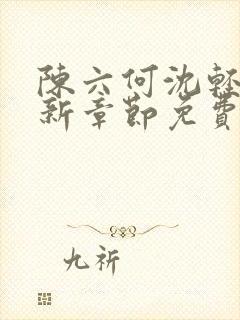 陳六何沈輕
新章節免費
九祈